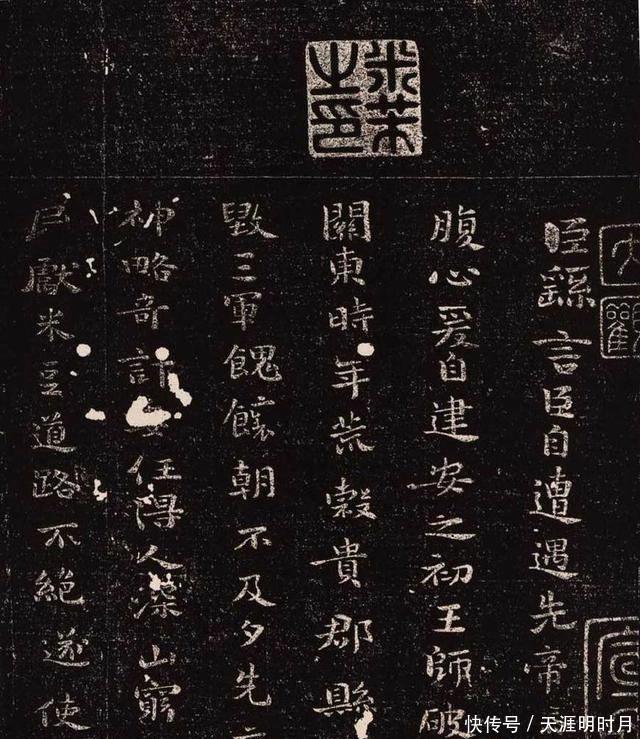 米芾之印
大觀
臣繇言臣自遭遇先帝
腹心爰自建安之初王師破
關東時年荒穀貴郡縣
毀三軍餽饟朝不及夕先
神略奇計委任得人深山窮
民獻米豆道路不絕遂使
快传号 / 天涯明时月